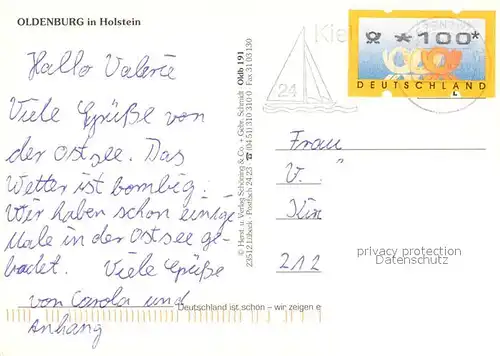 OLDENBURG in Holstein
Hallo Valerie
Viele Grüße von
der Ostsee. Das
Wetter ist bombig.
Wir haben schon einige
Male in der Ostsee ge-
badet. Viele Grüße
von Carola und
Anhang
© Herst. u. Verlag Schöning & Co. + Gebr. Schmidt Oldb 191
23512 Lübeck · Postfach 24 23 ☎ (04 51) 310 310-0 · Fax 31 03 130
Kiel
24
*100*
DEUTSCHLAND
L
Frau
V.
212
privacy protection
Datenschutz
Deutschland ist schön – wir zeigen e